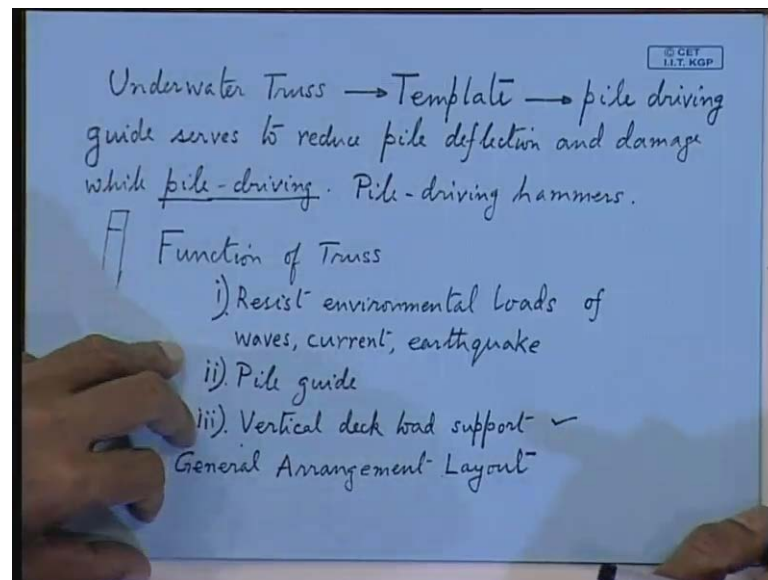 © CET
I.I.T. KGP
Underwater Truss → Template → pile driving
guide serves to reduce pile deflection and damage
while pile-driving. Pile-driving hammers.
Function of Truss
i). Resist environmental loads of
waves, current, earthquake
ii). Pile guide
iii). Vertical deck load support ✓
General Arrangement Layout